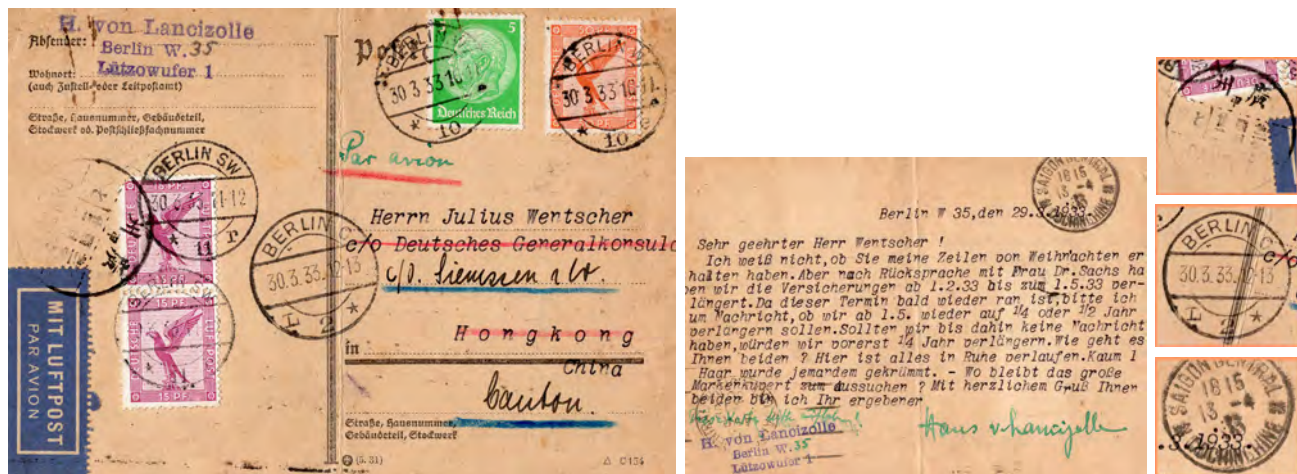 H. von Lancizolle
Absender:
Berlin W. 35
Wohnort: Lützowufer 1
(auch Zustell- oder Leitpostamt)
Straße, Hausnummer, Gebäudeteil,
Stockwerk od. Postschließfachnummer
BERLIN W.
30 3 33 10-11
* 10
5
Deutsches Reich
BERLIN W.
30 3 33 10-11
* 10 e
Par avion
BERLIN SW
30 3 33 11-12
* 11 r
15 PF
15 PF.
BERLIN C
30.3.33.12-13
2 *
MIT LUFTPOST
PAR AVION
Herrn Julius Wentscher
c/o Deutsches Generalkonsula
c/o. Siemssen & Co
Hongkong
in
China
Canton.
Straße, Hausnummer,
Gebäudeteil, Stockwerk
(5. 31)
C 154
SAIGON CENTRAL
18 15
13 -4
33
COCHINCHINE
Berlin W 35,den 29.3.1933.
Sehr geehrter Herr Wentscher !
Ich weiß nicht,ob Sie meine Zeilen von Weihnachten er
halten haben.Aber nach Rücksprache mit Frau Dr.Sachs ha
ben wir die Versicherungen ab 1.2.33 bis zum 1.5.33 ver-
längert.Da dieser Termin bald wieder ran ist,bitte ich
um Nachricht,ob wir ab 1.5. wieder auf 1/4 oder 1/2 Jahr
verlängern sollen.Sollten wir bis dahin keine Nachricht
haben,würden wir vorerst 1/4 Jahr verlängern.Wie geht es
Ihnen beiden ? Hier ist alles in Ruhe verlaufen.Kaum 1
Haar wurde jemandem gekrümmt. - Wo bleibt das große
Markenkuvert zum Aussuchen ? Mit herzlichem Gruß Ihnen
beiden bin ich Ihr ergebener
Hans v. Lancizolle
H. von Lancizolle
Berlin W.35
Lützowufer 1
BERLIN C
30.3.33.12-13
2 *
c/o
SAIGON CENTRAL
18 15
13 -4
33
.3.1933.
COCHINCHINE